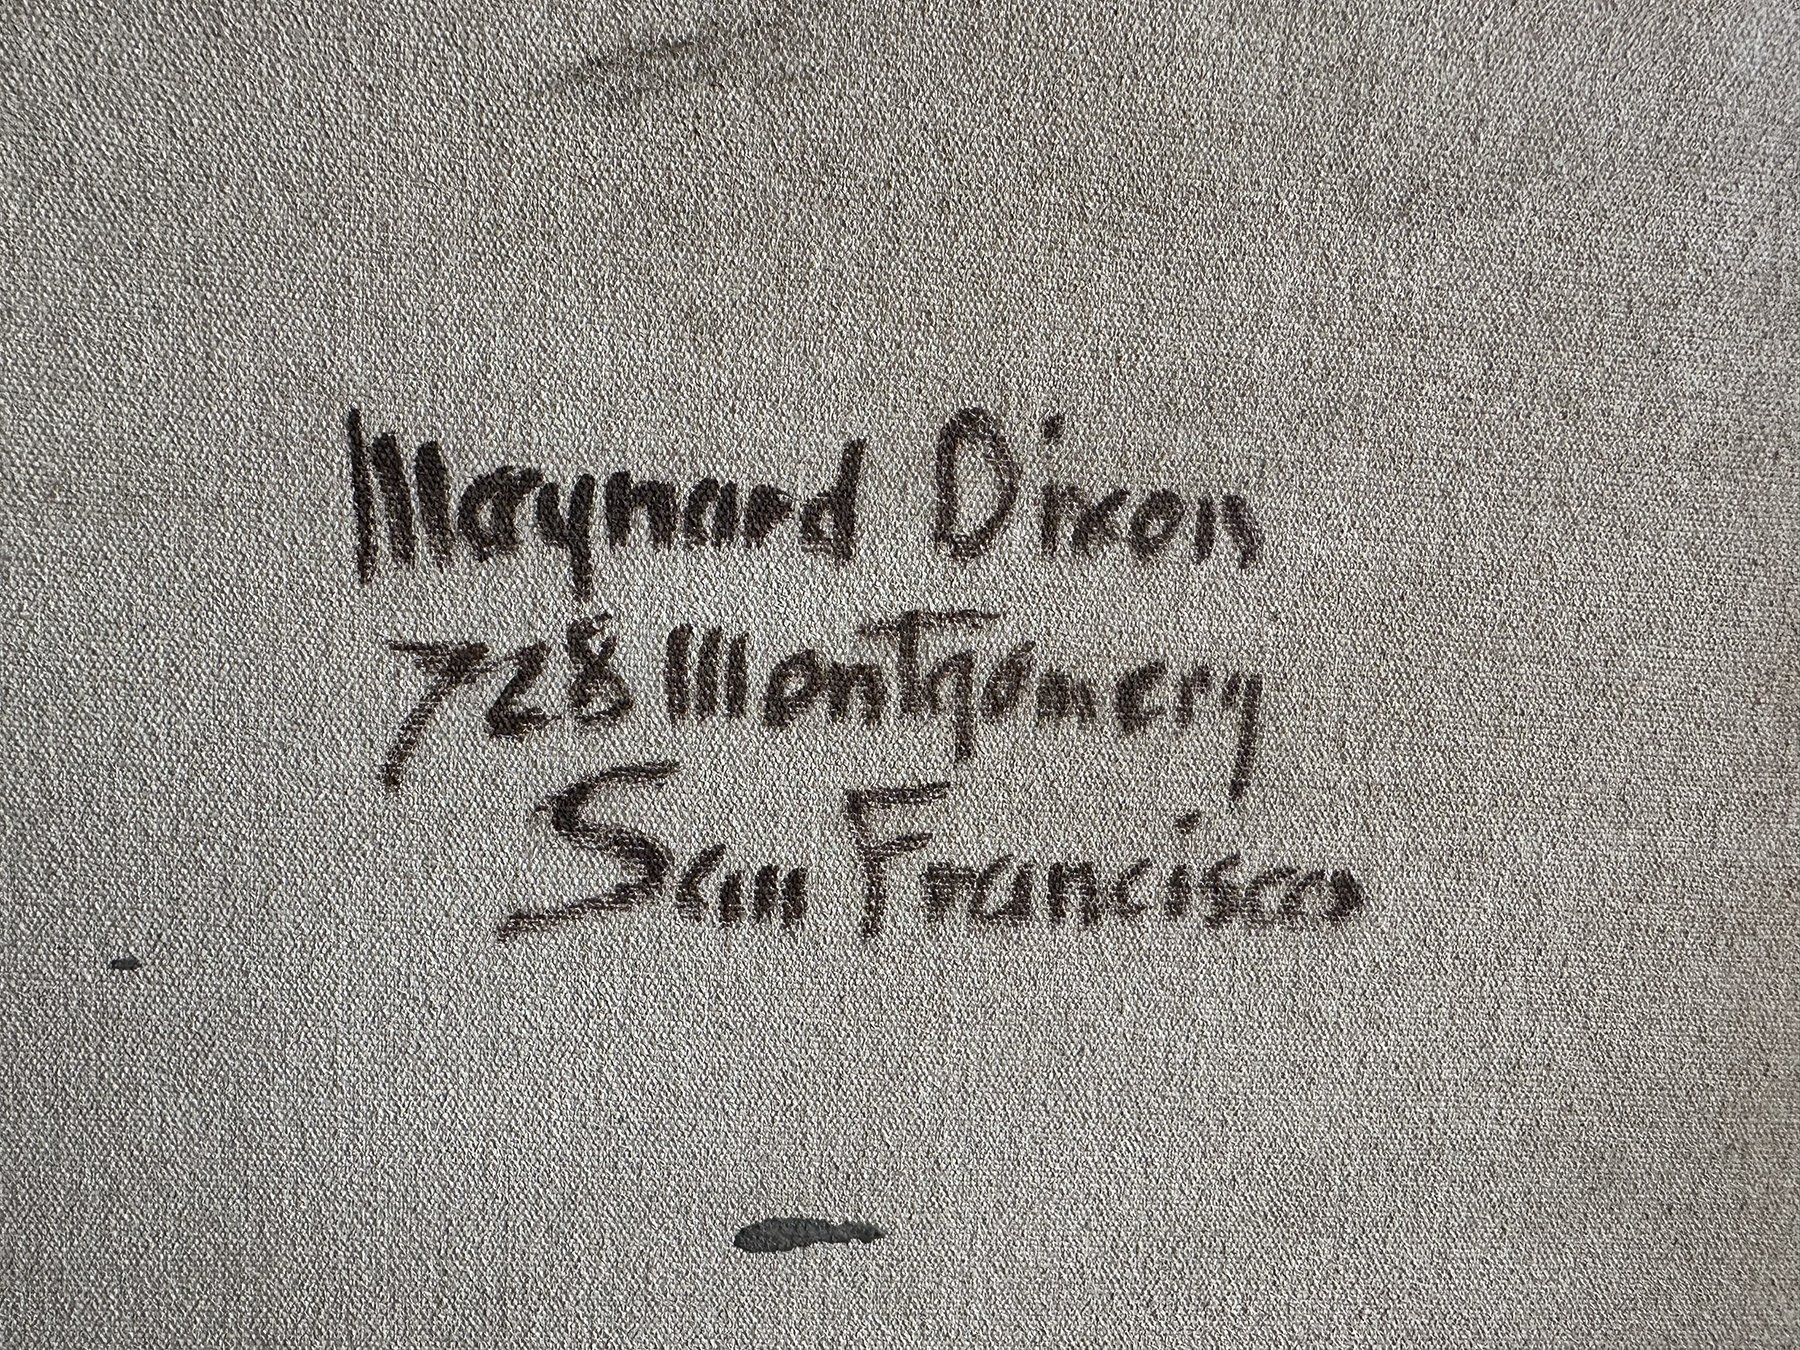 Maynard Dixon
728 Montgomery
San Francisco